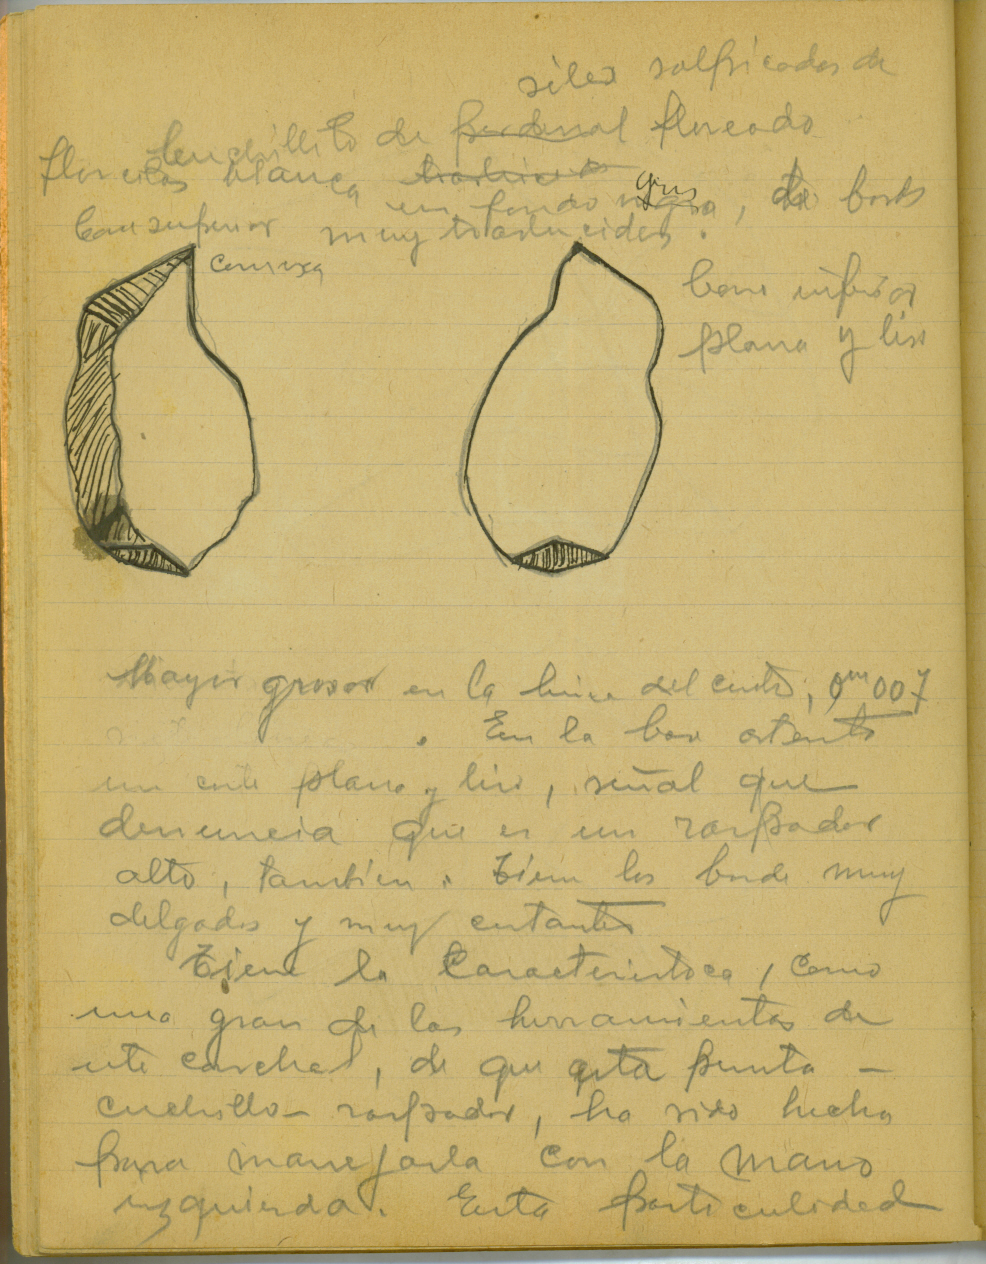 silex salpicados de
Cuchillito de pedernal floreado
florcitas blanca en fondo negro gris, de bords
muy traslucidos.
Cara superior
convexa
Cara inferior
plana y lisa
Mayor grosor en la linea del centro, 0m007
. En la base ostenta
un corte plano y liso, señal que
denuncia que es un raspador
alto, tambien. Tiene los borde muy
delgados y muy cortantes
Tiene la caracteristica, como
una gran de las herramientas de
este conchal, de que esta punta -
cuchillo - raspador, ha sido hecha
para manejarla con la mano
izquierda. Esta particulidad